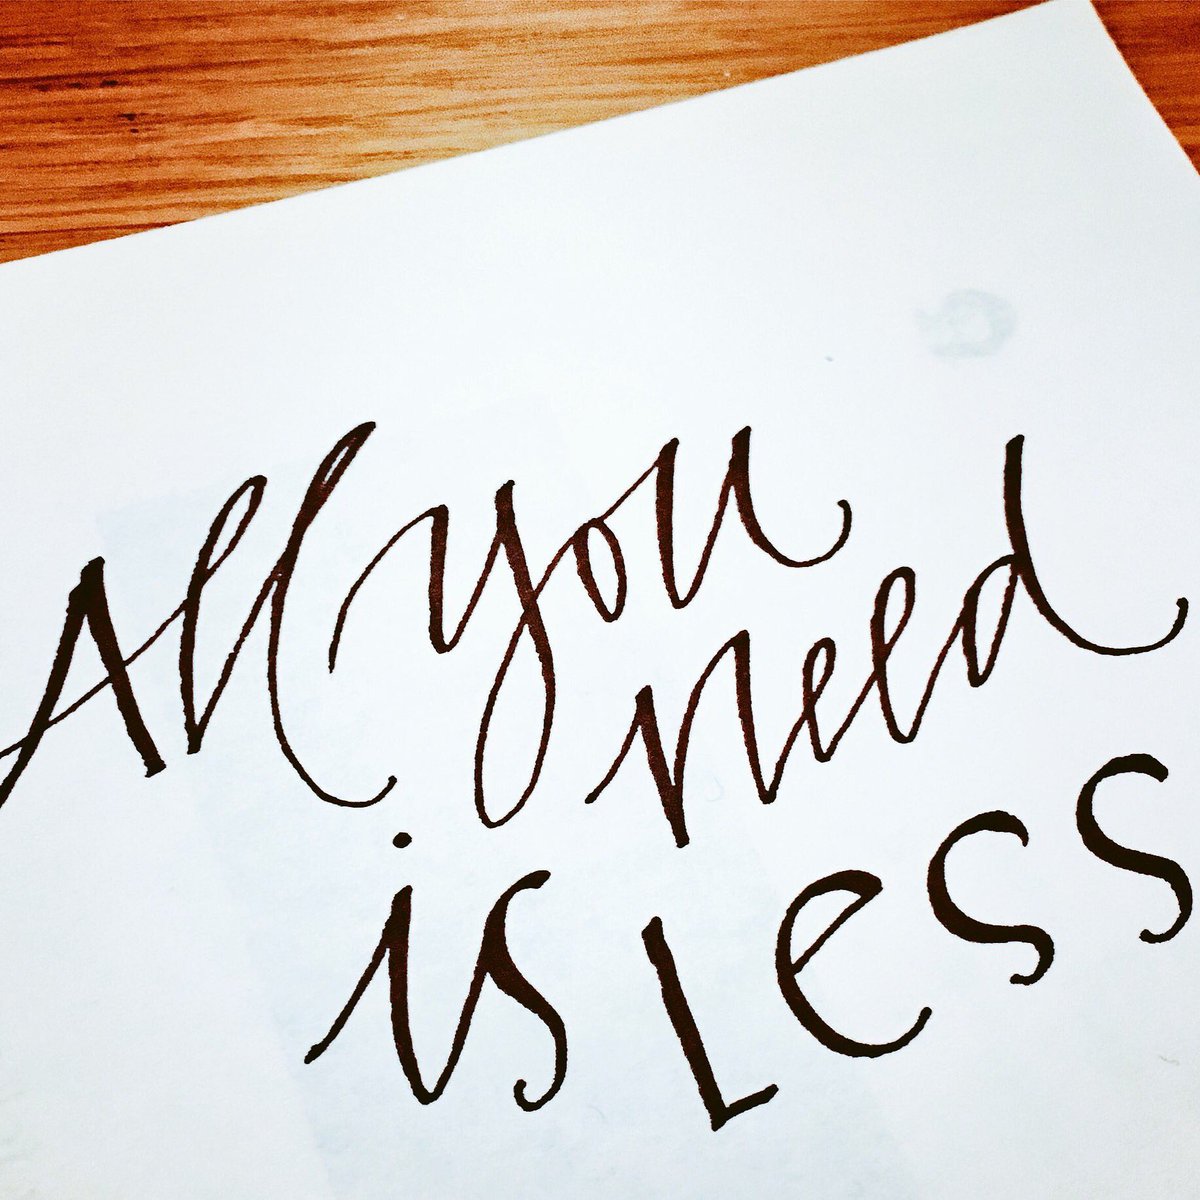 All you
need
is Less